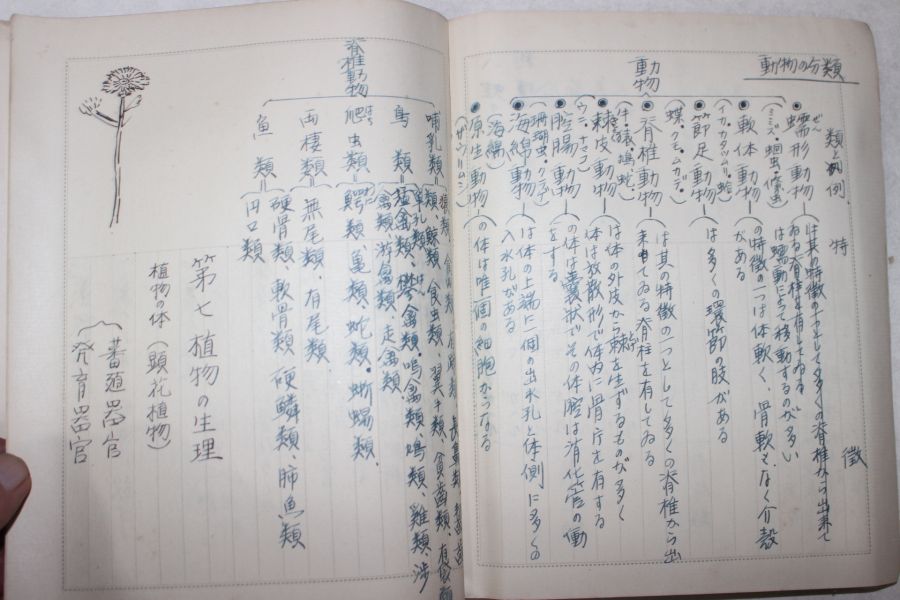 動物の分類
類と例
特
徴
動物
蠕形動物
ぜん
(ミミズ・蛔虫・條虫)
は其の特徴の
は蠕動よつて移動するのが多い
軟体動物
(イカ・カタツムリ・蛤)
の特徴の一つは体軟く、骨軟もなく介殻
がある
節足動物
(蝶・クモ・ムカデ)
は多くの環節の肢がある
脊椎動物
(牛・猿・鳩・蛇)
は其の特徴の一つとして多くの脊椎から出
来てゐる脊柱を有してゐる
棘皮動物
(ウニ・ナマコ)
は体の外皮から棘を生ずるものが多く
体は放散形で体内に骨片を有する
腔腸動物
(珊瑚虫・クラゲ)
の体は嚢状でその体腔は消化管の働
をする
海綿動物
(海綿)
は体の上端に一個の出水孔と体側に多くの
入水孔がある
原生動物
(ザウリムシ)
の体は唯一個の細胞からなる
脊椎動物
哺乳類
類、鯨類、食虫類、翼手類、食歯類、有
単孔類
鳥類
猛禽類、攀禽類、鳴禽類、鳩類、雞類、渉
禽類、游禽類、走禽類
爬虫類
鰐類、亀類、蛇類、蜥蜴類、
両棲類
無尾類、有尾類
魚類
硬骨類、軟骨類、硬鱗類、肺魚類
円口類
第七 植物の生理
植物の体(顕花植物)
蕃殖器官
発育器官